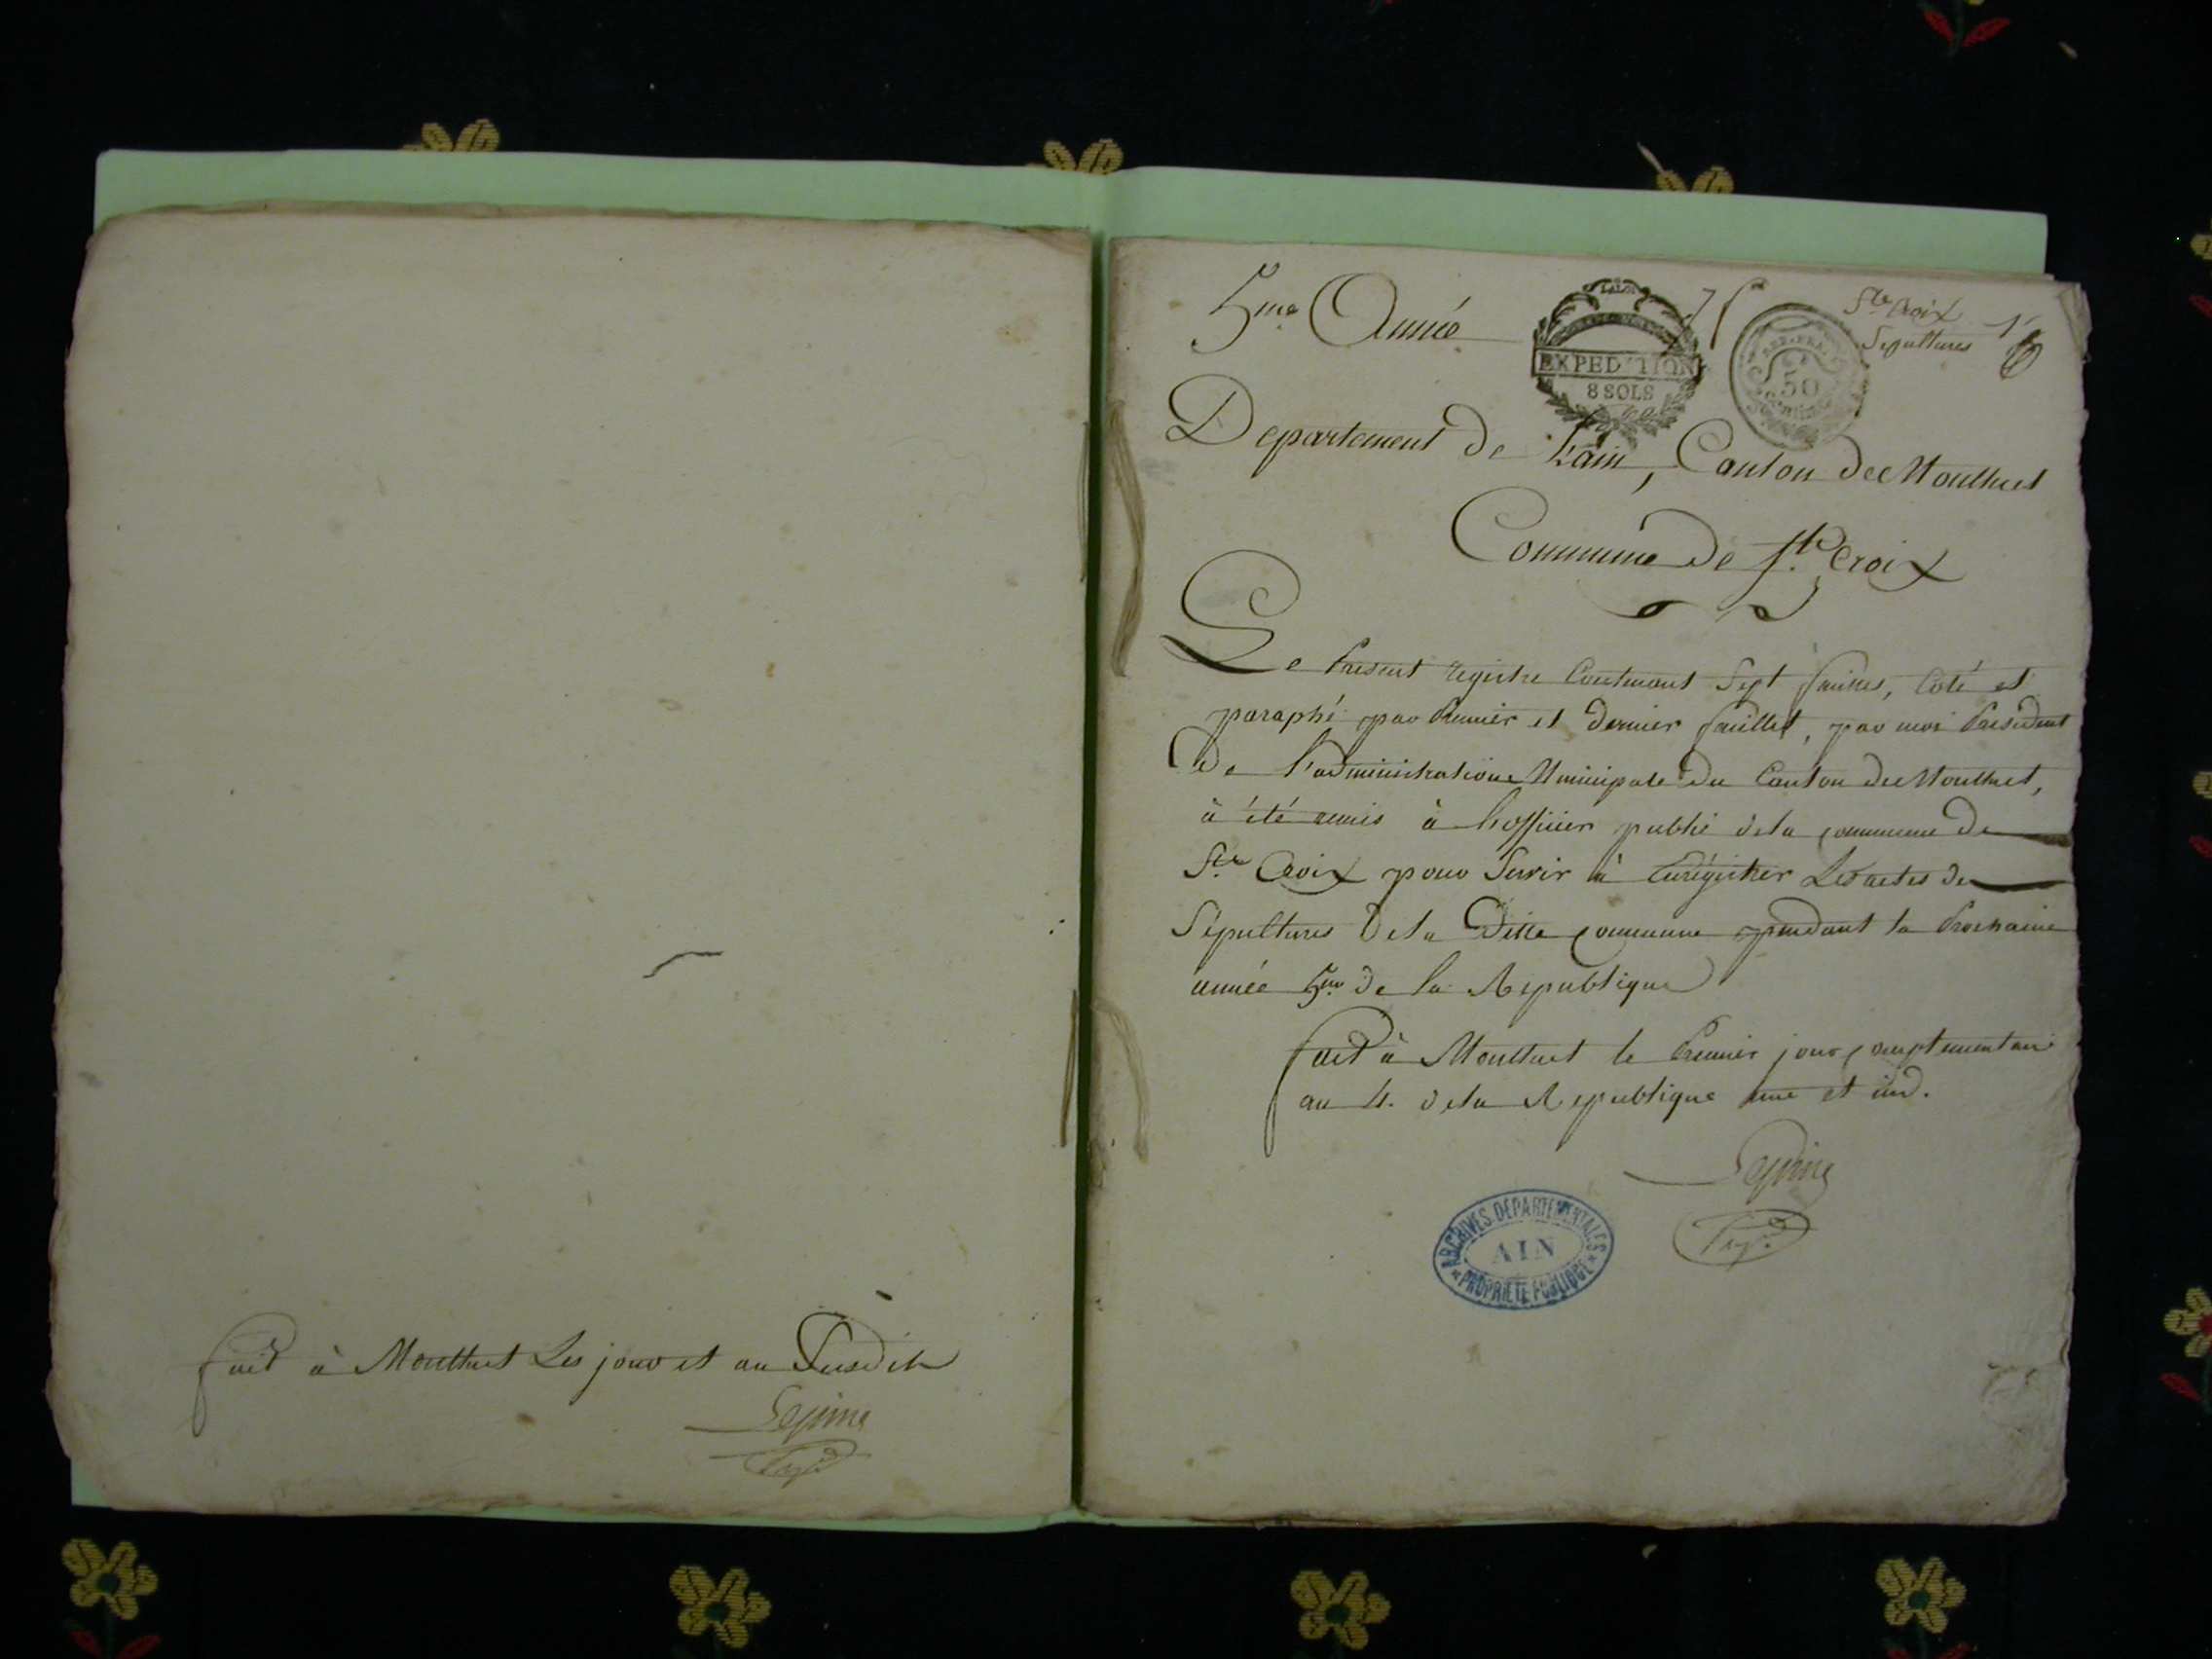 fait à Montluel Les jour et an Susdits
Lepine
5me Année
LA LOI
EXPEDITION
8 SOLS
REP. FRA.
50
Centimes
Ste Croix
Sepultures
Departement de L'ain, Canton de Montluel
Commune de Ste Croix
Le Present registre Contenant Sept feuilles, Coté et
paraphé par Premier et Dernier feuillet, par moi President
De l'administration Municipale du Canton de Montluel,
à été remis à l'officier public dela commune De
Ste Croix pour Servir à Enrégistrer Les actes de
Sépultures Dela Ditte commune pendant la Prochaine
année 5me de la Republique
fait à Montluel le Premier jour complementaire
an 4. dela Republique une et ind.
Lepine
ARCHIVES DEPARTEMENTALES
AIN
PROPRIETE PUBLIQUE